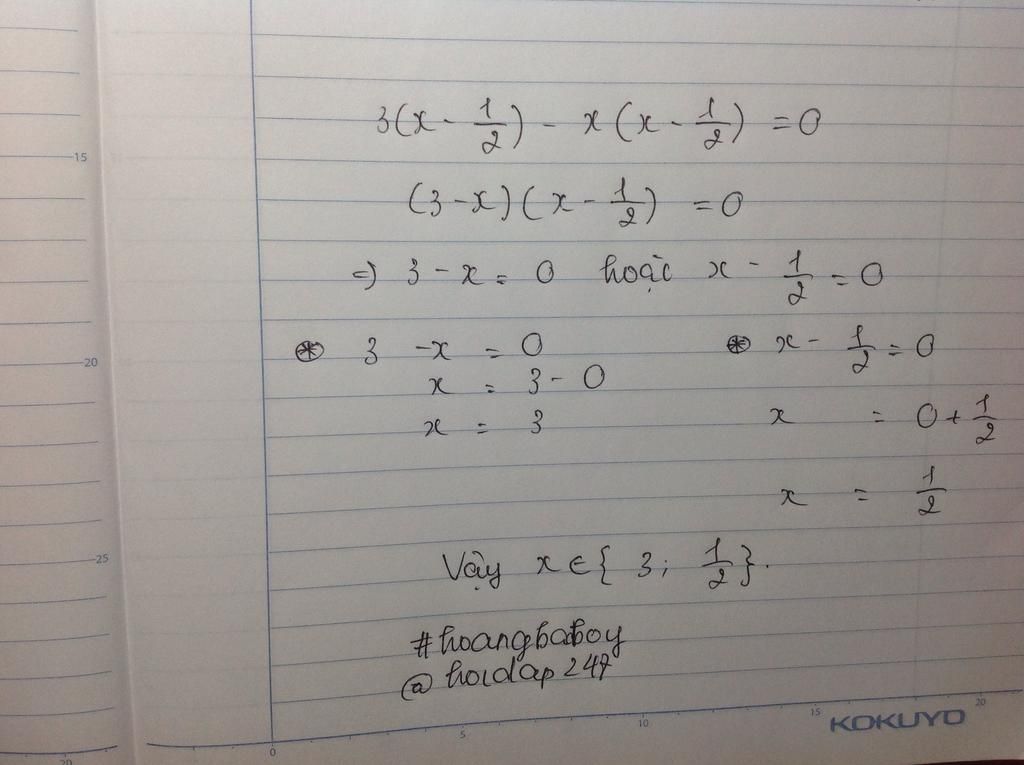 3(x - 1/2) - x(x - 1/2) = 0
(3 - x)(x - 1/2) = 0
=> 3 - x = 0 hoặc x - 1/2 = 0
⊛ 3 - x = 0
x = 3 - 0
x = 3
⊛ x - 1/2 = 0
x = 0 + 1/2
x = 1/2
Vậy x ∈ { 3; 1/2 }.
#hoangbaboy
@hoidap247
15
20
25
20
0
5
10
15
20
KOKUYO